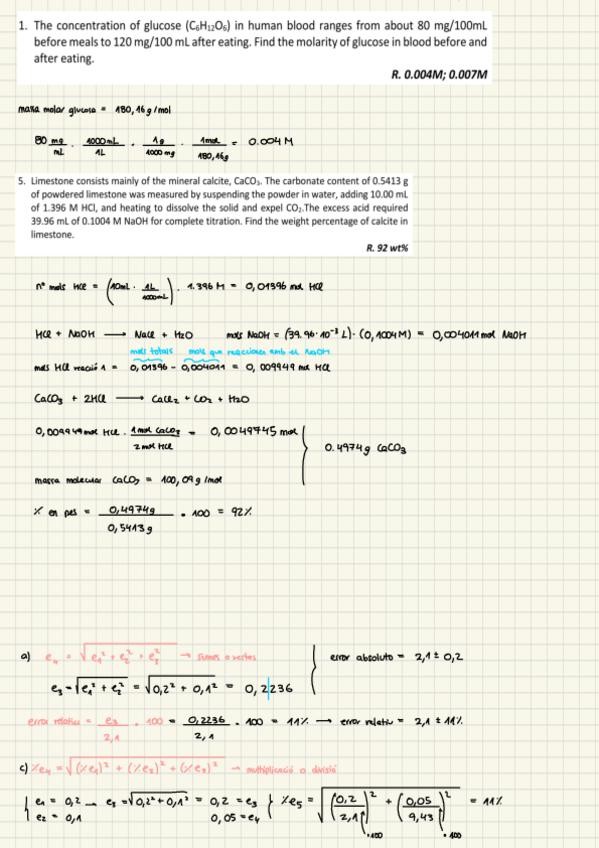 1. The concentration of glucose (C₆H₁₂O₆) in human blood ranges from about 80 mg/100mL
before meals to 120 mg/100 mL after eating. Find the molarity of glucose in blood before and
after eating.
R. 0.004M; 0.007M
massa molar glucosa = 180,16 g/mol
80 mg/mL · 1000mL/1L · 1g/1000 mg · 1mol/180,16g = 0.004 M
5. Limestone consists mainly of the mineral calcite, CaCO₃. The carbonate content of 0.5413 g
of powdered limestone was measured by suspending the powder in water, adding 10.00 mL
of 1.396 M HCl, and heating to dissolve the solid and expel CO₂.The excess acid required
39.96 mL of 0.1004 M NaOH for complete titration. Find the weight percentage of calcite in
limestone.
R. 92 wt%
nº mols HCl = (10mL · 1L/1000mL) · 1.396 M = 0,01396 mol HCl
HCl + NaOH ⟶ NaCl + H₂O mols NaOH = (39.96·10⁻³ L)·(0,1004M) = 0,004011 mol NaOH
mols totals mols que reaccionen amb el NaOH
mols HCl reacció 1 = 0,01396 - 0,004011 = 0,009949 mol HCl
CaCO₃ + 2HCl ⟶ CaCl₂ + CO₂ + H₂O
0,009949 mol HCl · 1 mol CaCO₃/2 mol HCl = 0,0049745 mol
0.4974g CaCO₃
massa molecular CaCO₃ = 100,09 g/mol
% en pes = 0,4974g/0,5413g · 100 = 92%
a) e₄ = √e₁² + e₂² + e₃² → sumes o restes
error absoluto = 2,1 ± 0,2
e₃ = √e₁² + e₂² = √0,2² + 0,1² = 0,2236
error relatiu = e₃/2,1 · 100 = 0,2236/2,1 · 100 = 11% → error relatiu = 2,1 ± 11%
c) %e₄ = √(%e₁)² + (%e₂)² + (%e₃)² → multiplicació o divisió
{ e₁ = 0,2 → e₃ = √0,2² + 0,1² = 0,2 = e₃ } %e₅ = √(0,2/2,1 · 100)² + (0,05/9,43 · 100)² = 11%
e₂ = 0,1 0,05 = e₄